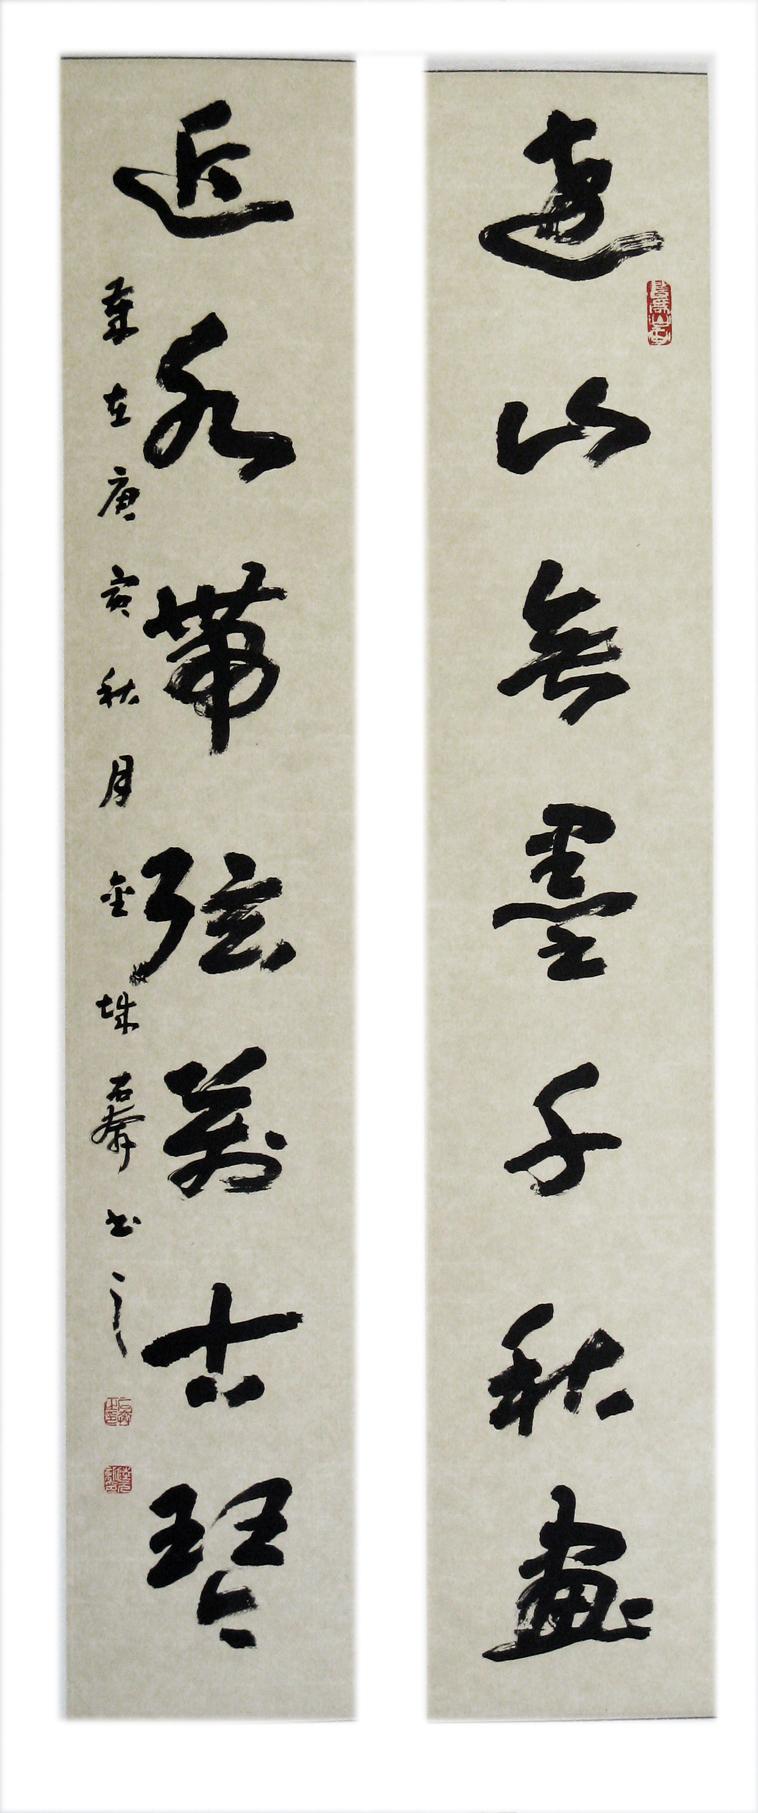 遠山無墨千秋畫
近水帶弦萬古琴
歲在庚寅秋月金城石書之